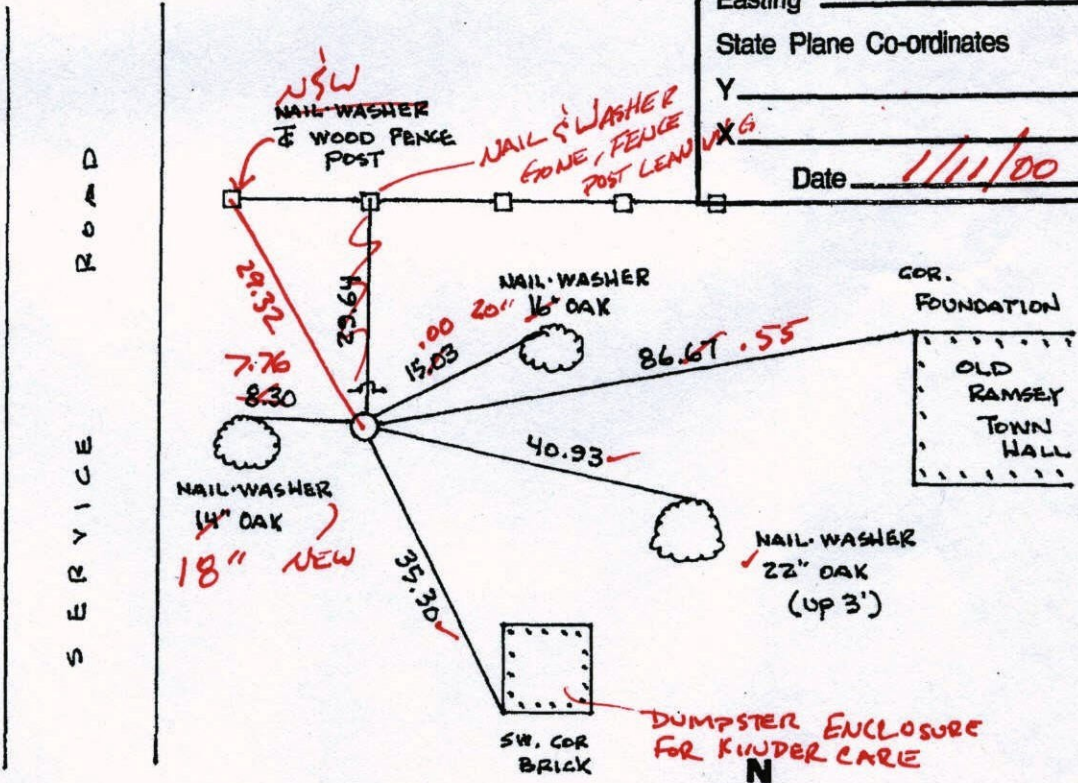 Easting
State Plane Co-ordinates
Y
X
Date 1/11/00
N&W
NAIL·WASHER
WOOD FENCE
POST
NAIL & WASHER
GONE, FENCE
POST LEANING
ROAD
SERVICE
29.32
29.64
7.76
8.30
NAIL·WASHER
20" 16" OAK
.00
15.03
86.67 .55
COR.
FOUNDATION
OLD
RAMSEY
TOWN
HALL
40.93
NAIL·WASHER
14" OAK
18" NEW
35.30
NAIL·WASHER
22" OAK
(UP 3')
SW. COR
BRICK
DUMPSTER ENCLOSURE
FOR KINDER CARE
N